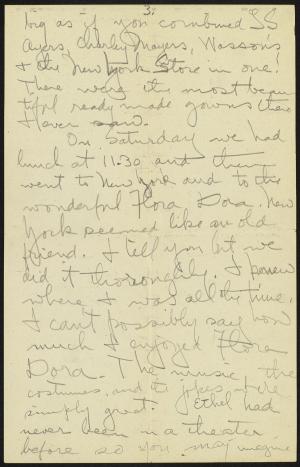 3.
big as if you combined LS
Ayers, Charley Mayers, Wassons
& the New York Store in one!
There were the most beau
tiful ready made gowns there
I ever saw.
On Saturday we had
lunch at 11.30 and then
went to New York and to the
wonderful Flora Dora. New
York seemed like an old
friend. I tell you but we
did it thoroughly. I knew
where I was all the time.
I can't possibly say how
much I enjoyed Flora
Dora. The music, the
costumes, and the jokes were
simply great. Ethel had
never been in a theater
before so you may imagine